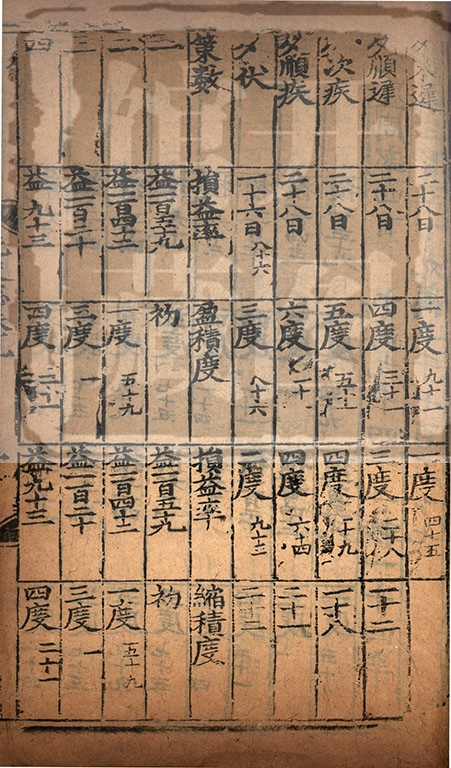 夕末遲 二十八日 二度 九十一 一度 四十五
夕順遲 二十八日 四度 三十一 三度 二十八 一十二
夕次疾 二十八日 五度 四度 一十九 一十八
夕順疾 二十八日 六度 二十 四度 六十四 二十一
夕伏 一十六日 八十六 三度 八十六 二度 九十三 二十二
策數 損益率 盈積度 損益率 縮積度
一 益一百五十九 初 益一百五十九 初
二 益一百四十二 一度 五十九 益一百四十二 一度 五十九
三 益一百二十 三度 一 益一百二十 三度 一
四 益九十三 四度 二十一 益九十三 四度 二十一